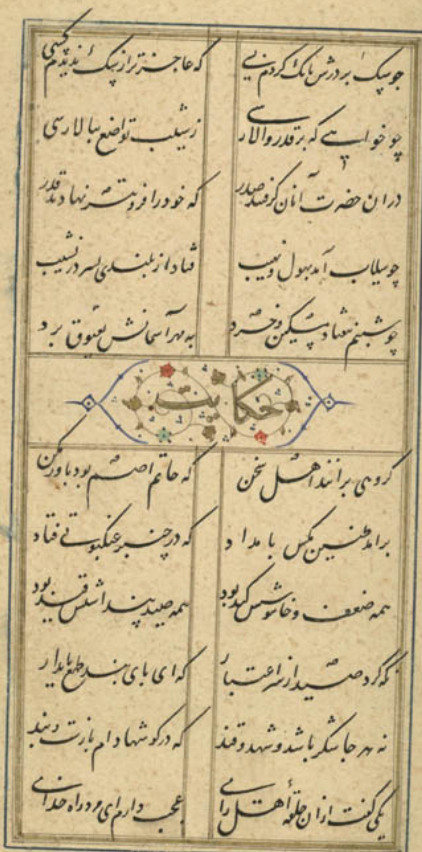 چو سگ بر درش بانگ کردم بسی که عاجزتر از سگ ندیدم کسی
چو خواهی که بر قدر والا رسی ز شیب تواضع ببالا رسی
دران حضرت آنان گرفتند صدر که خود را فروتر نهادند قدر
چو سیلاب آمد بهول و نهیب فتاد از بلندی بسر در نشیب
چو شبنم بیفتاد مسکین و خرد به مهر آسمانش بعیوق برد
حکایت
گروهی برانند اهل سخن که حاتم اصم بود باور مکن
برآمد طنین مگس بامداد که در چنبر عنکبوتی فتاد
همه ضعف و خاموشیش کید بود همه صید پنداشتش قید بود
نگه کرد صید از سر اعتبار که ای پای بند طمع پای دار
نه هر جا شکر باشد و شهد و قند که در گوشها دام یارست و بند
یکی گفت ازان حلقه اهل رای عجب دارم ای مرد راه خدای